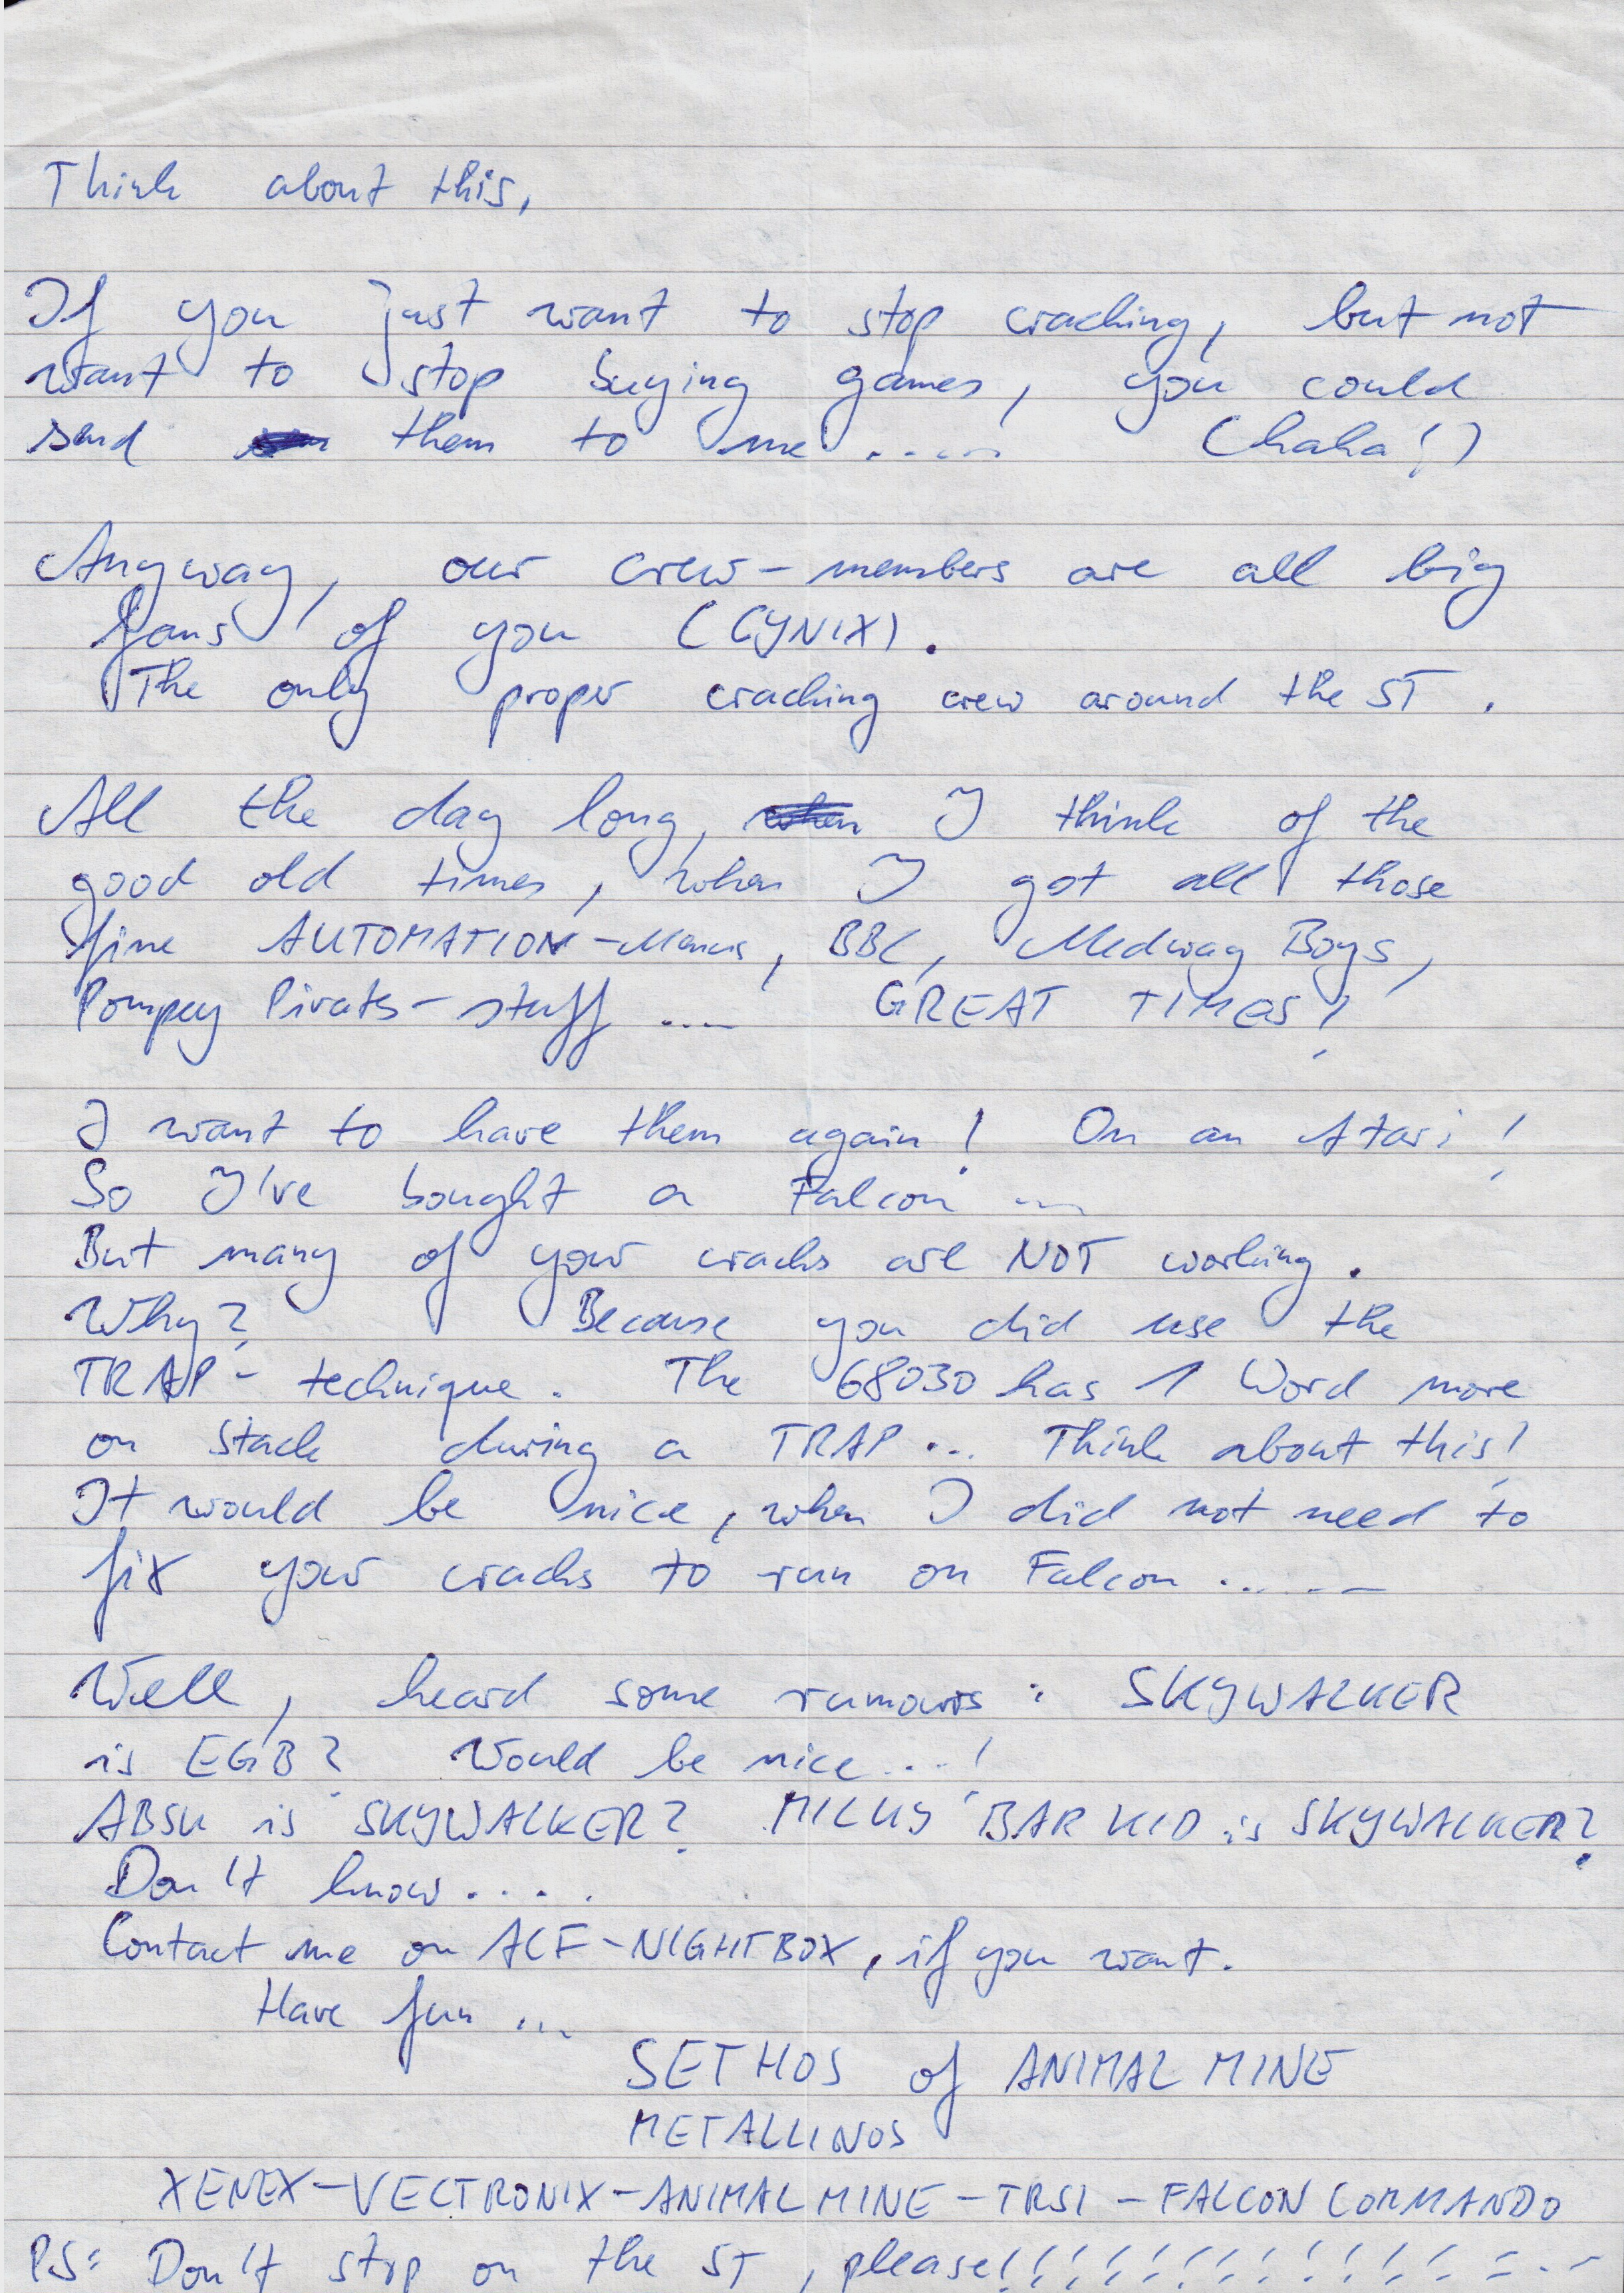 Think about this,
If you just want to stop cracking, but not
want to stop buying games, you could
send them to me ..... (haha!)
Anyway, our crew-members are all big
fans of you (CYNIX).
The only proper cracking crew around the ST.
All the day long, I think of the
good old times, when I got all those
fine AUTOMATION-Menus, BBC, Medway Boys,
Pompey Pirates-stuff .... GREAT TIMES!
I want to have them again! On an Atari!
So I've bought a Falcon ...
But many of your cracks are NOT working.
Why? Because you did use the
TRAP-technique. The 68030 has 1 Word more
on stack during a TRAP... Think about this!
It would be nice, when I did not need to
fix your cracks to run on Falcon ......
Well, heard some rumours: SKYWALKER
is EGB? Would be nice...!
ABSK is SKYWALKER? MILKY BAR KID is SKYWALKER?
Don't know....
Contact me on ACF-NIGHTBOX, if you want.
Have fun ...
SETHOS of ANIMAL MINE
METALLINOS
XENEX-VECTRONIX-ANIMAL MINE-TRSI-FALCON COMMANDO
PS: Don't stop on the ST, please!!!!!!!!!!!!!!...